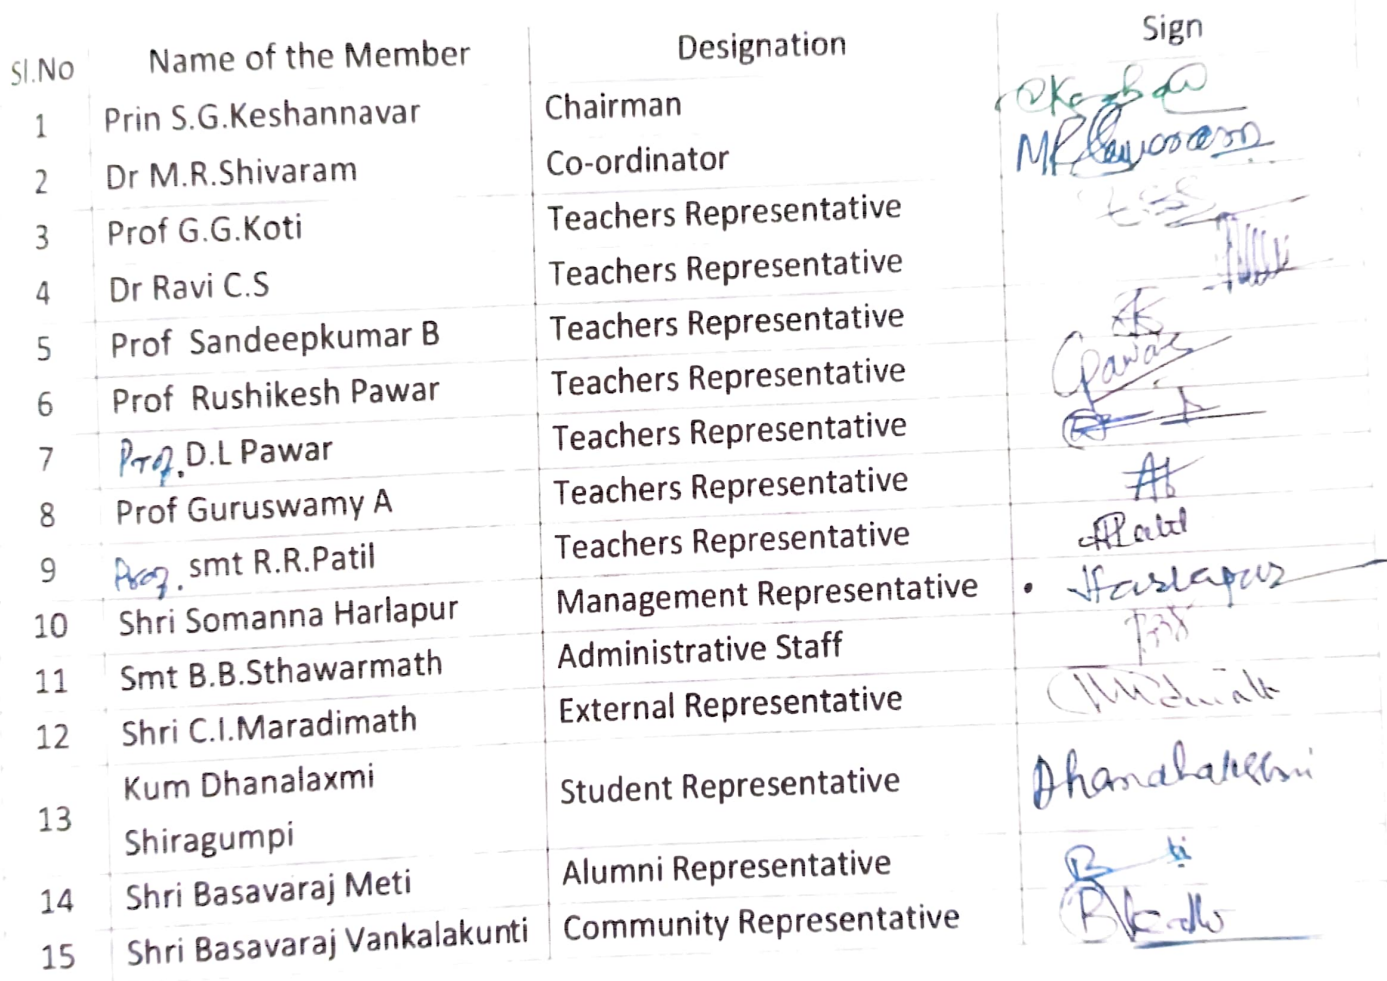 Sl.No Name of the Member Designation Sign
1 Prin S.G.Keshannavar Chairman
2 Dr M.R.Shivaram Co-ordinator
3 Prof G.G.Koti Teachers Representative
4 Dr Ravi C.S Teachers Representative
5 Prof Sandeepkumar B Teachers Representative
6 Prof Rushikesh Pawar Teachers Representative Pawar
7 Prof. D.L Pawar Teachers Representative
8 Prof Guruswamy A Teachers Representative
9 Prof. smt R.R.Patil Teachers Representative
10 Shri Somanna Harlapur Management Representative Harlapur
11 Smt B.B.Sthawarmath Administrative Staff
12 Shri C.I.Maradimath External Representative
13 Kum Dhanalaxmi
Shiragumpi Student Representative
14 Shri Basavaraj Meti Alumni Representative
15 Shri Basavaraj Vankalakunti Community Representative